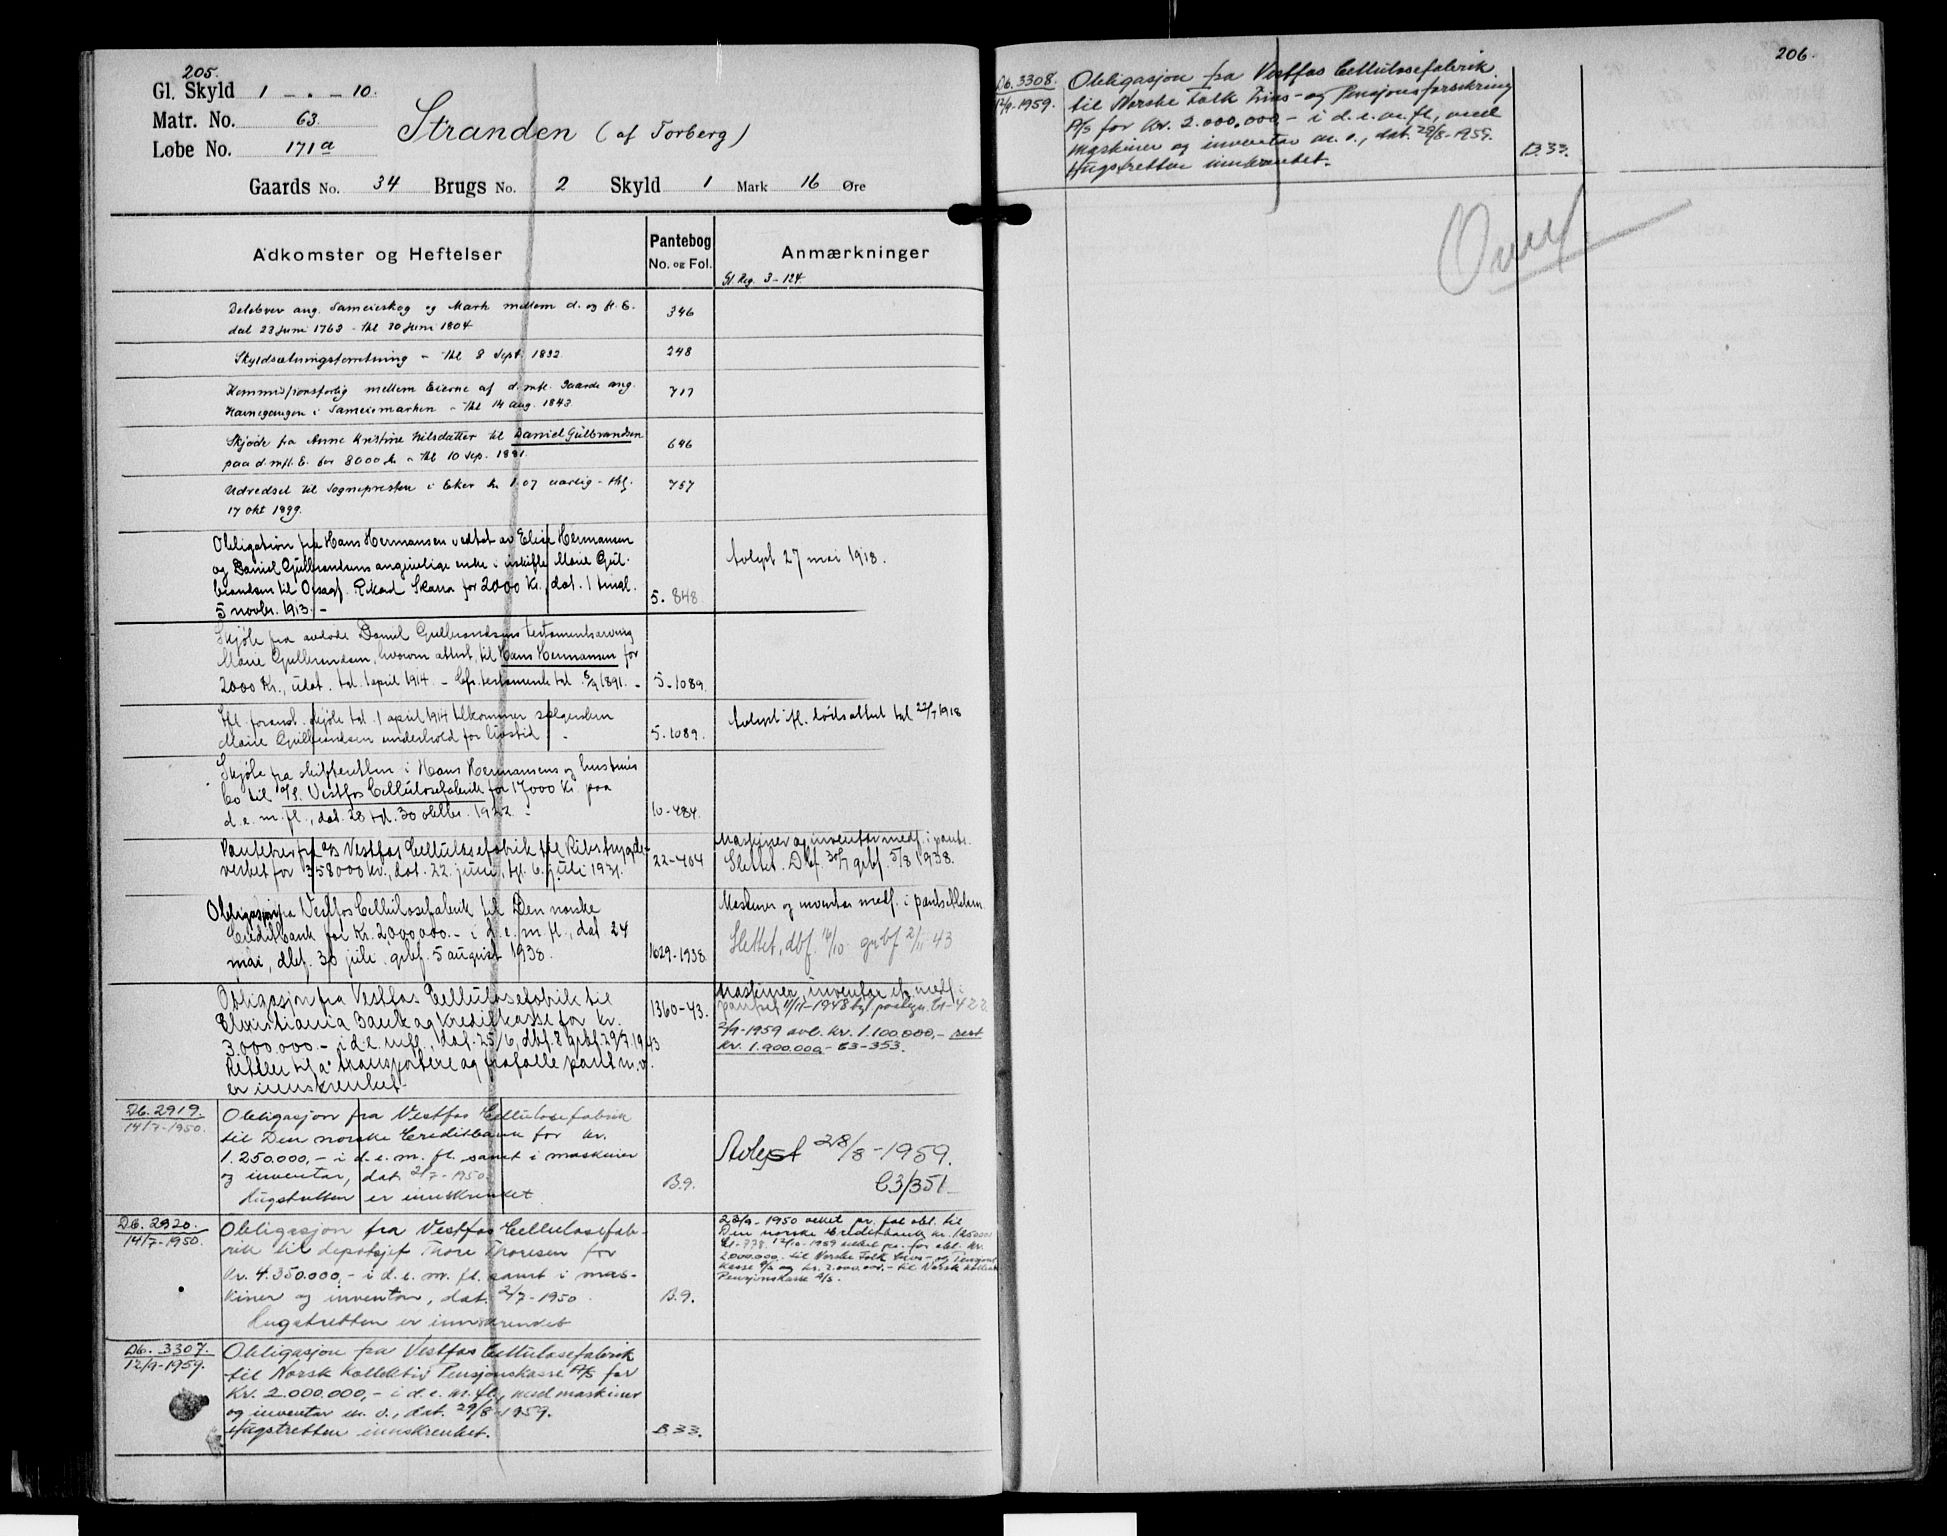 205.
Gl. Skyld 1 - . - 10.
Matr. No. 63.
Løbe No. 171 a
Stranden (af Torberg)
Gaards No. 34 Brugs No. 2 Skyld 1 Mark 16 Øre
Adkomster og Heftelser
Pantebog
No. og Fol.
Anmærkninger
Gl. Reg. 3 - 124.
Delebrev ang. Sameieskog og Mark mellem d. og fl. E.
dat 23 juni 1763 - thl 30 juni 1804
346
Skyldsætningsforretning - thl 8 Sept. 1832.
248
Kommissionsforlig mellem Eierne af d. mfl. Gaarde ang.
Havnegangen i Sameiemarken - thl 14 aug. 1843.
717
Skjøde fra Anne Kristine Nilsdatter til Daniel Gulbrandsen
paa d. mfl. E. for 8000 kr - thl 10 Sep. 1881.
646
Udredsel til Sognepresten i Eker kr 1.07 aarlig - thl.
17 okt 1899.
757
Obligation fra Hans Hermansen vedtat av Elise Hermansen
og Daniel Gulbrandsens angivelige enke i uskifte Marie Gul-
brandsen til Rikard Skarra for 2000 Kr., dat. 1 tingl.
5 novbr. 1913. -
5. 848.
Avlyst 27 mai 1918.
Skjøte fra avdøde Daniel Gulbrandsens testamentsarving
Marie Gulbrandsen, hvorom attest, til Hans Hermansen for
2000 Kr., udat. td. 1 april 1914. - Cfr. testamente td. 8/9 1891. -
5-1089.
Ifl. foranst. skjøte td. 1 april 1914 tilkommer sælgersken
Marie Gulbrandsen underhold for livstid.
5-1089.
Avlyst fl. dødsattest td 22/7 1918
Skjøte fra skifteretten i Hans Hermansens og hustrus
bo til A/S. Vestfos Cellulosefabrik for 17000 Kr paa
d. e. m. fl., dat. 28 td. 30 oktbr. 1922.
10-484.
Pantebrev fra A/S Vestfos Cellulosefabrik til Rikstrygde-
verket for 358000 kr., dat. 22. juni, tgl. 6. juli 1931.
22-404
Maskiner og inventar medf. i pant.
Slettet. Dbf. 30/7 grbf. 5/8 1938.
Obligasjon fra Vestfos Cellulosefabrik til Den norske
Creditbank for Kr. 2,000,000.- i d. e. m. fl., dat 24
mai, dbf. 30 juli, grbf. 5 august 1938.
1029-1938.
Maskiner og inventar medf. i pantsettelsen.
Slettet, dbf. 19/10 grbf 2/11 43
Obligasjon fra Vestfos Cellulosefabrik til
Christiania Bank og Kreditkasse for kr.
3.000.000.- i d. e. mfl., dat. 25/6, dbf. 8 grbf. 29/7. 1943
Retten til å transportere og frafalle pant m. v.
er innskrenket.
1360-43.
Maskiner, inventar etc medf. i
pantet 11/11-1948 C1-422
2/9-1959 avl. kr. 1.100.000,- rest
kr. 1.900.000,- C3-353.
Db. 2919.
14/7-1950.
Obligasjon fra Vestfos Cellulosefabrik
til Den norske Creditbank for kr.
1.250.000,- i d. e. m. fl. samt i maskiner
og inventar, dat. 2/7-1950.
Hugstretten er innskrenket
B.9.
Avlyst 28/8-1959.
C3/351
Db. 2920.
14/7-1950.
Obligasjon fra Vestfos Cellulosefab-
rik til depotsjef Thore Thoresen for
kr. 4.350.000,- i d. e. m. fl. samt i mas-
kiner og inventar, dat. 2/7-1950.
Hugstretten er innskrenket
B.9.
23/9-1950 veket pr. for obl. til
Den norske Creditbank kr. 1250000
C1-778. 12/10-1959 veket pr. for obl. kr.
2.000.000,- til Norske Folk Livs- og Pensjons
kasse A/S og kr. 2.000.000,- til Norsk Kollektiv
Pensjonskasse A/S.
Db. 3307.
12/9-1959.
Obligasjon fra Vestfos Cellulosefabrik
til Norsk Kollektiv Pensjonskasse A/S for
kr. 2.000.000,- i d. e. m. fl., med maskiner
og inventar m. v., dat. 29/8-1959.
Hugstretten innskrenket.
B.33.
206.
Db. 3308.
12/9-1959.
Obligasjon fra Vestfos Cellulosefabrik
til Norske Folk Livs- og Pensjonsforsikring
A/S for kr. 2.000.000,- i d. e. m. fl., med
maskiner og inventar m. v., dat. 29/8-1959.
Hugstretten innskrenket.
B.33.